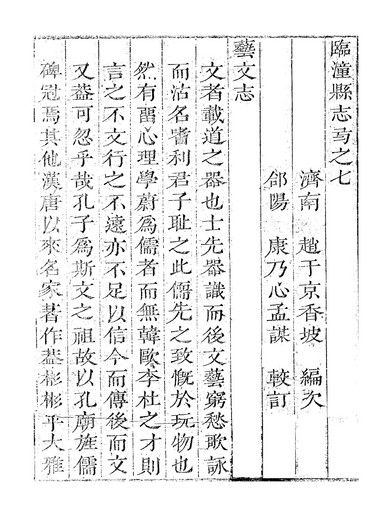 臨潼縣志卷之七
濟南 趙于京香坡 編次
郃陽 康乃心孟謀 較訂
藝文志
文者載道之器也士先器識而後文藝窮愁歌詠
而沽名嗜利君子耻之此儒先之致慨於玩物也
然有留心理學蔚為儒者而無韓歐李杜之才則
言之不文行之不遠亦不足以信今而傳後而文
又葢可忽乎哉孔子為斯文之祖故以孔廟旌儒
碑冠焉其他漢唐以來名家著作葢彬彬乎大雅